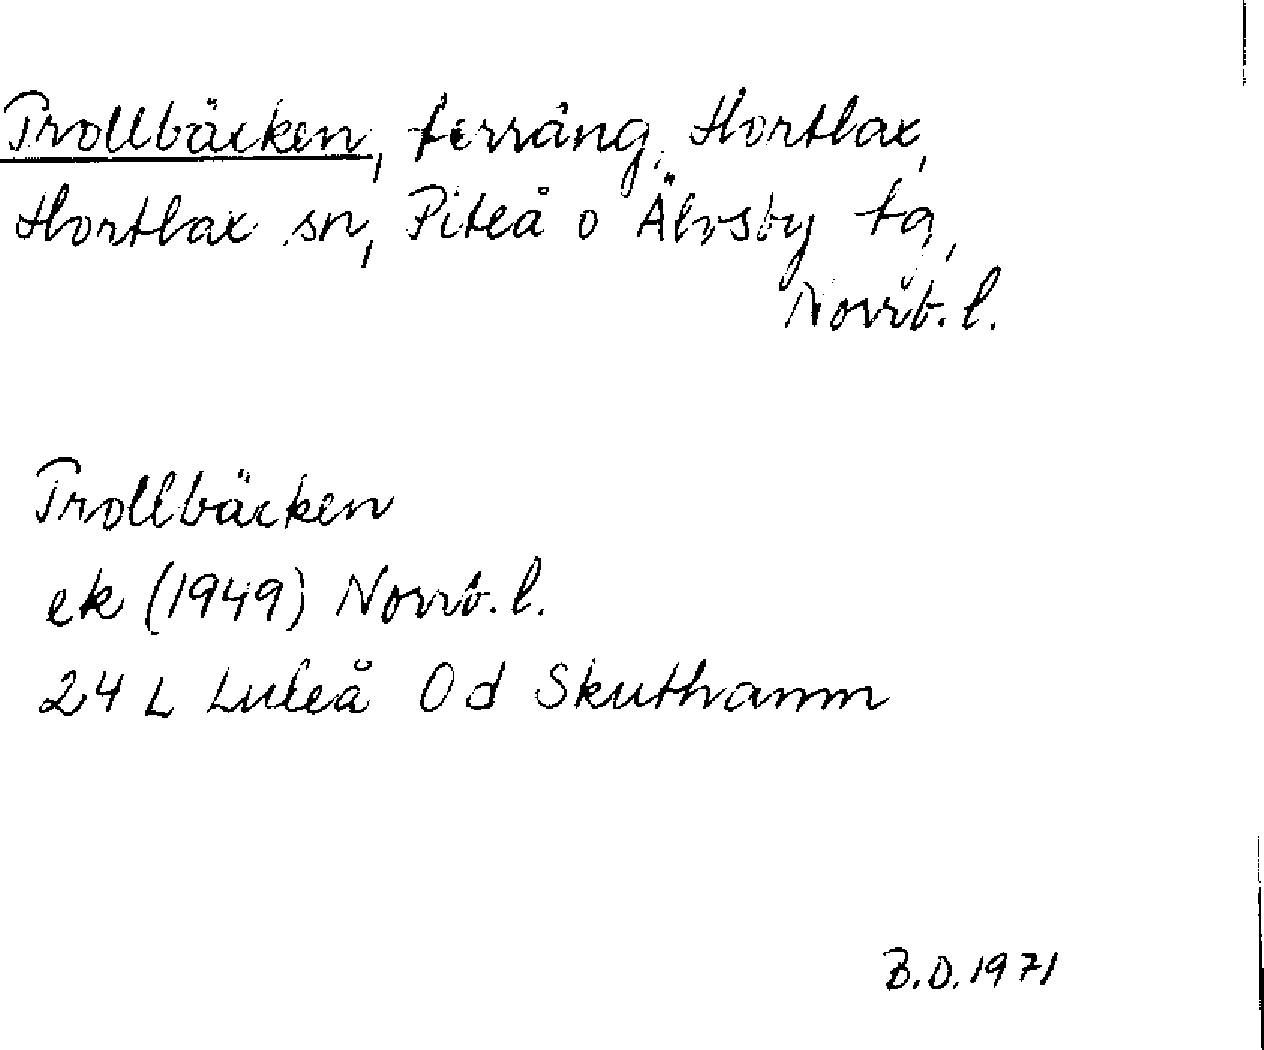 Trollbäcken, terräng, Hortlax,
Hortlax sn, Piteå o Älvsby tg,
Norrb. l.
Trollbäcken
ek (1949) Norrb. l.
24 L Luleå Od Skuthamn
B.D. 1971